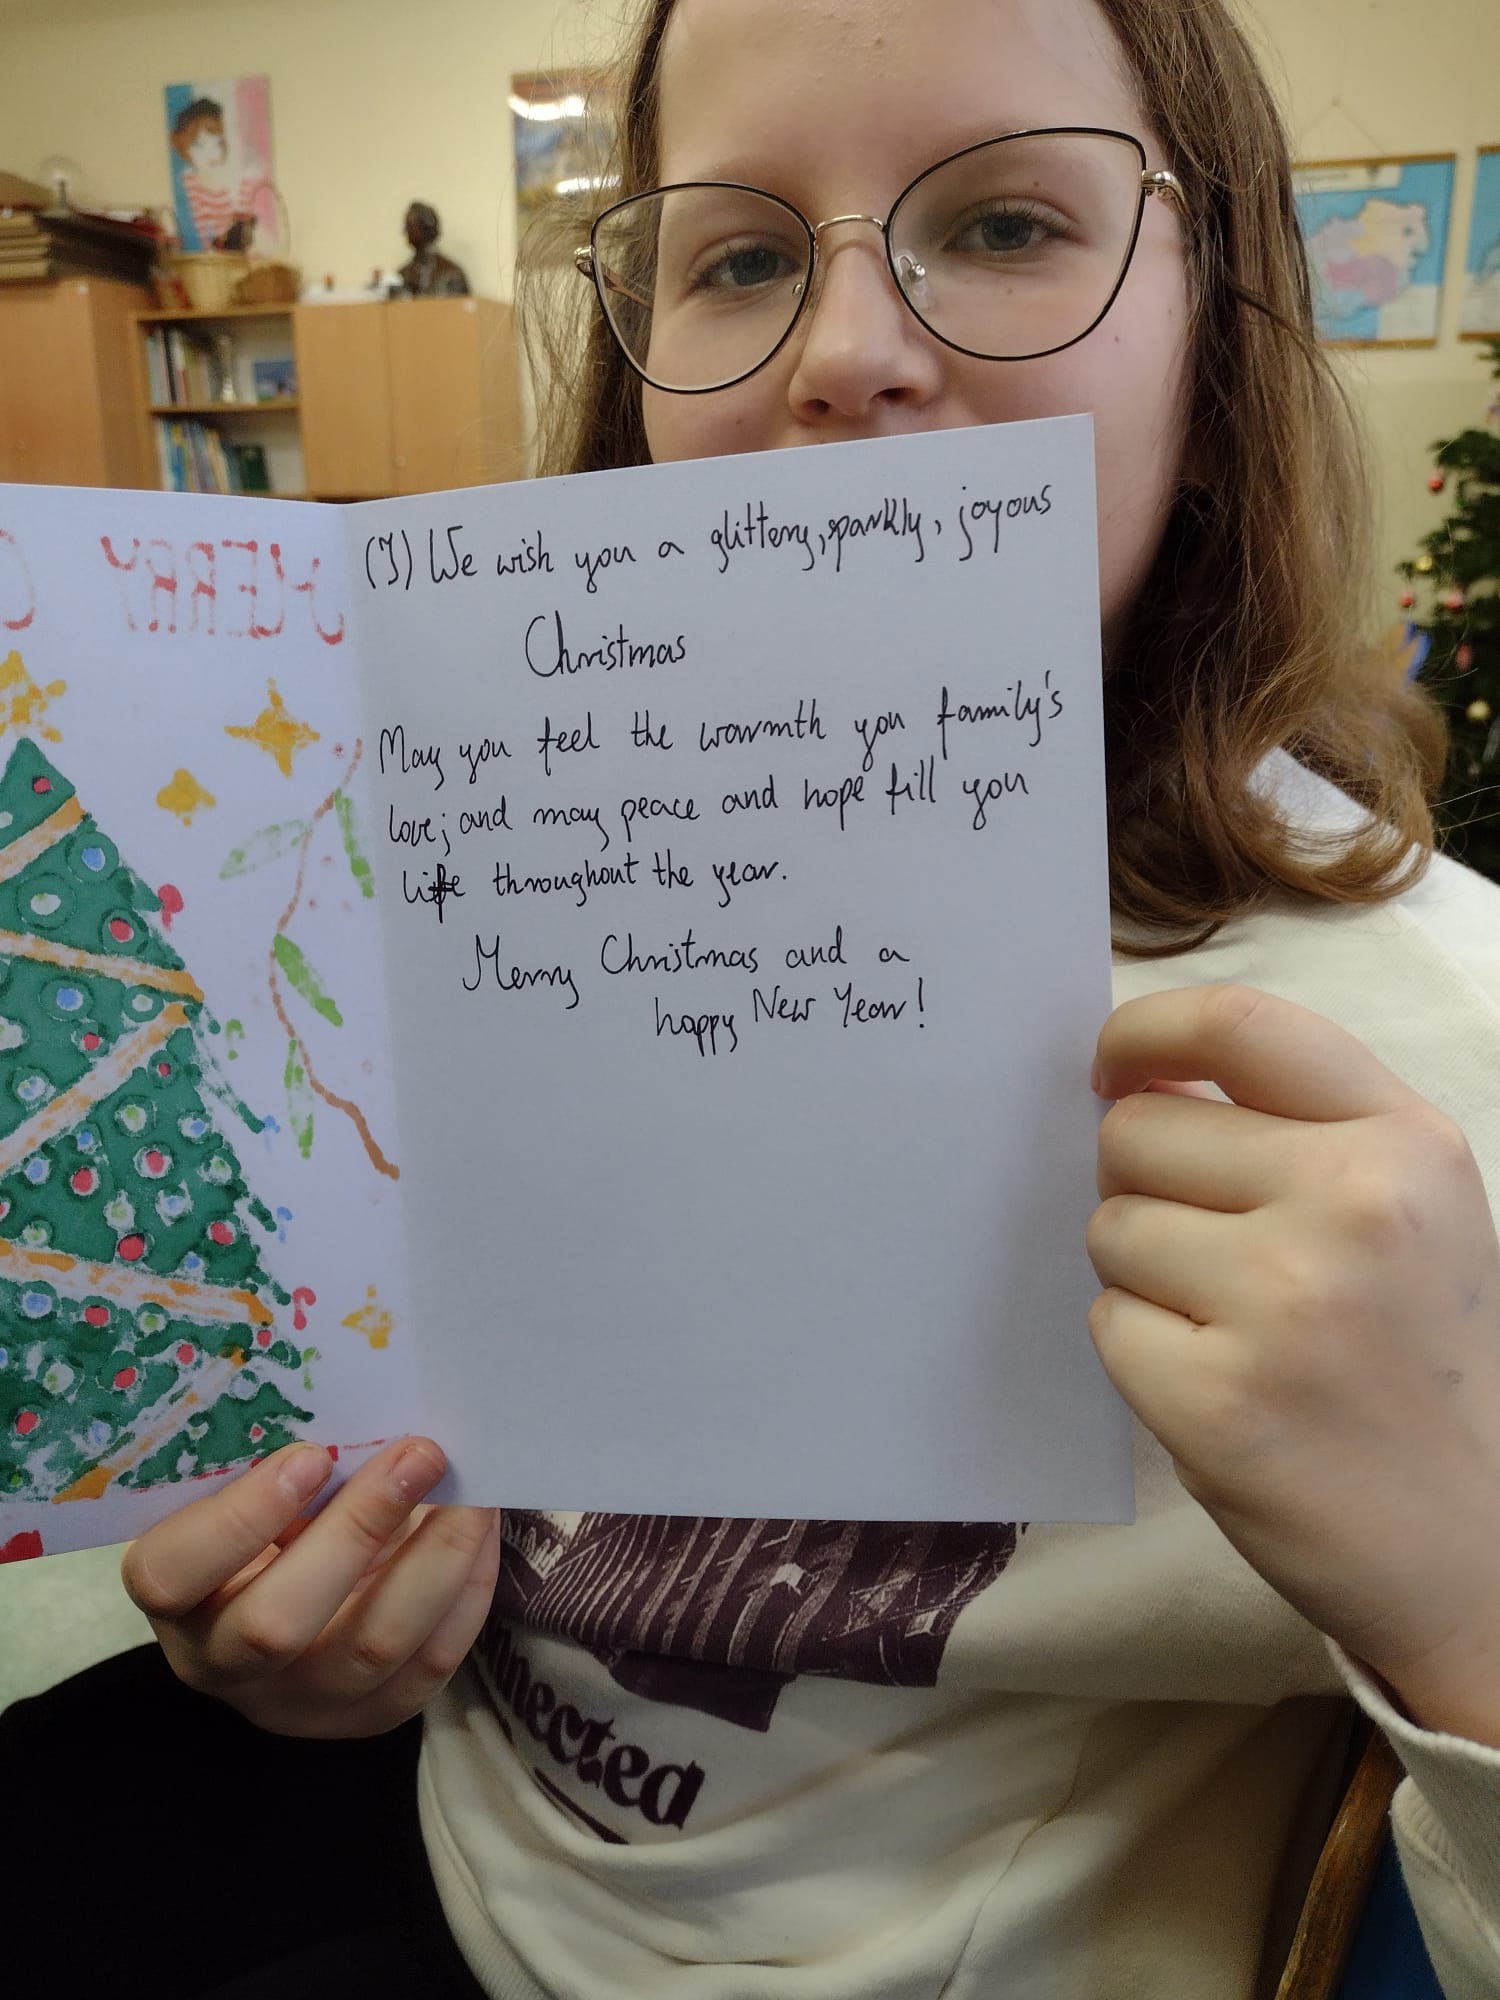 MERRY C
(I) We wish you a glittery, sparkly, joyous
Christmas
May you feel the warmth you family's
love; and may peace and hope fill you
life throughout the year.
Merry Christmas and a
happy New Year!
nnected